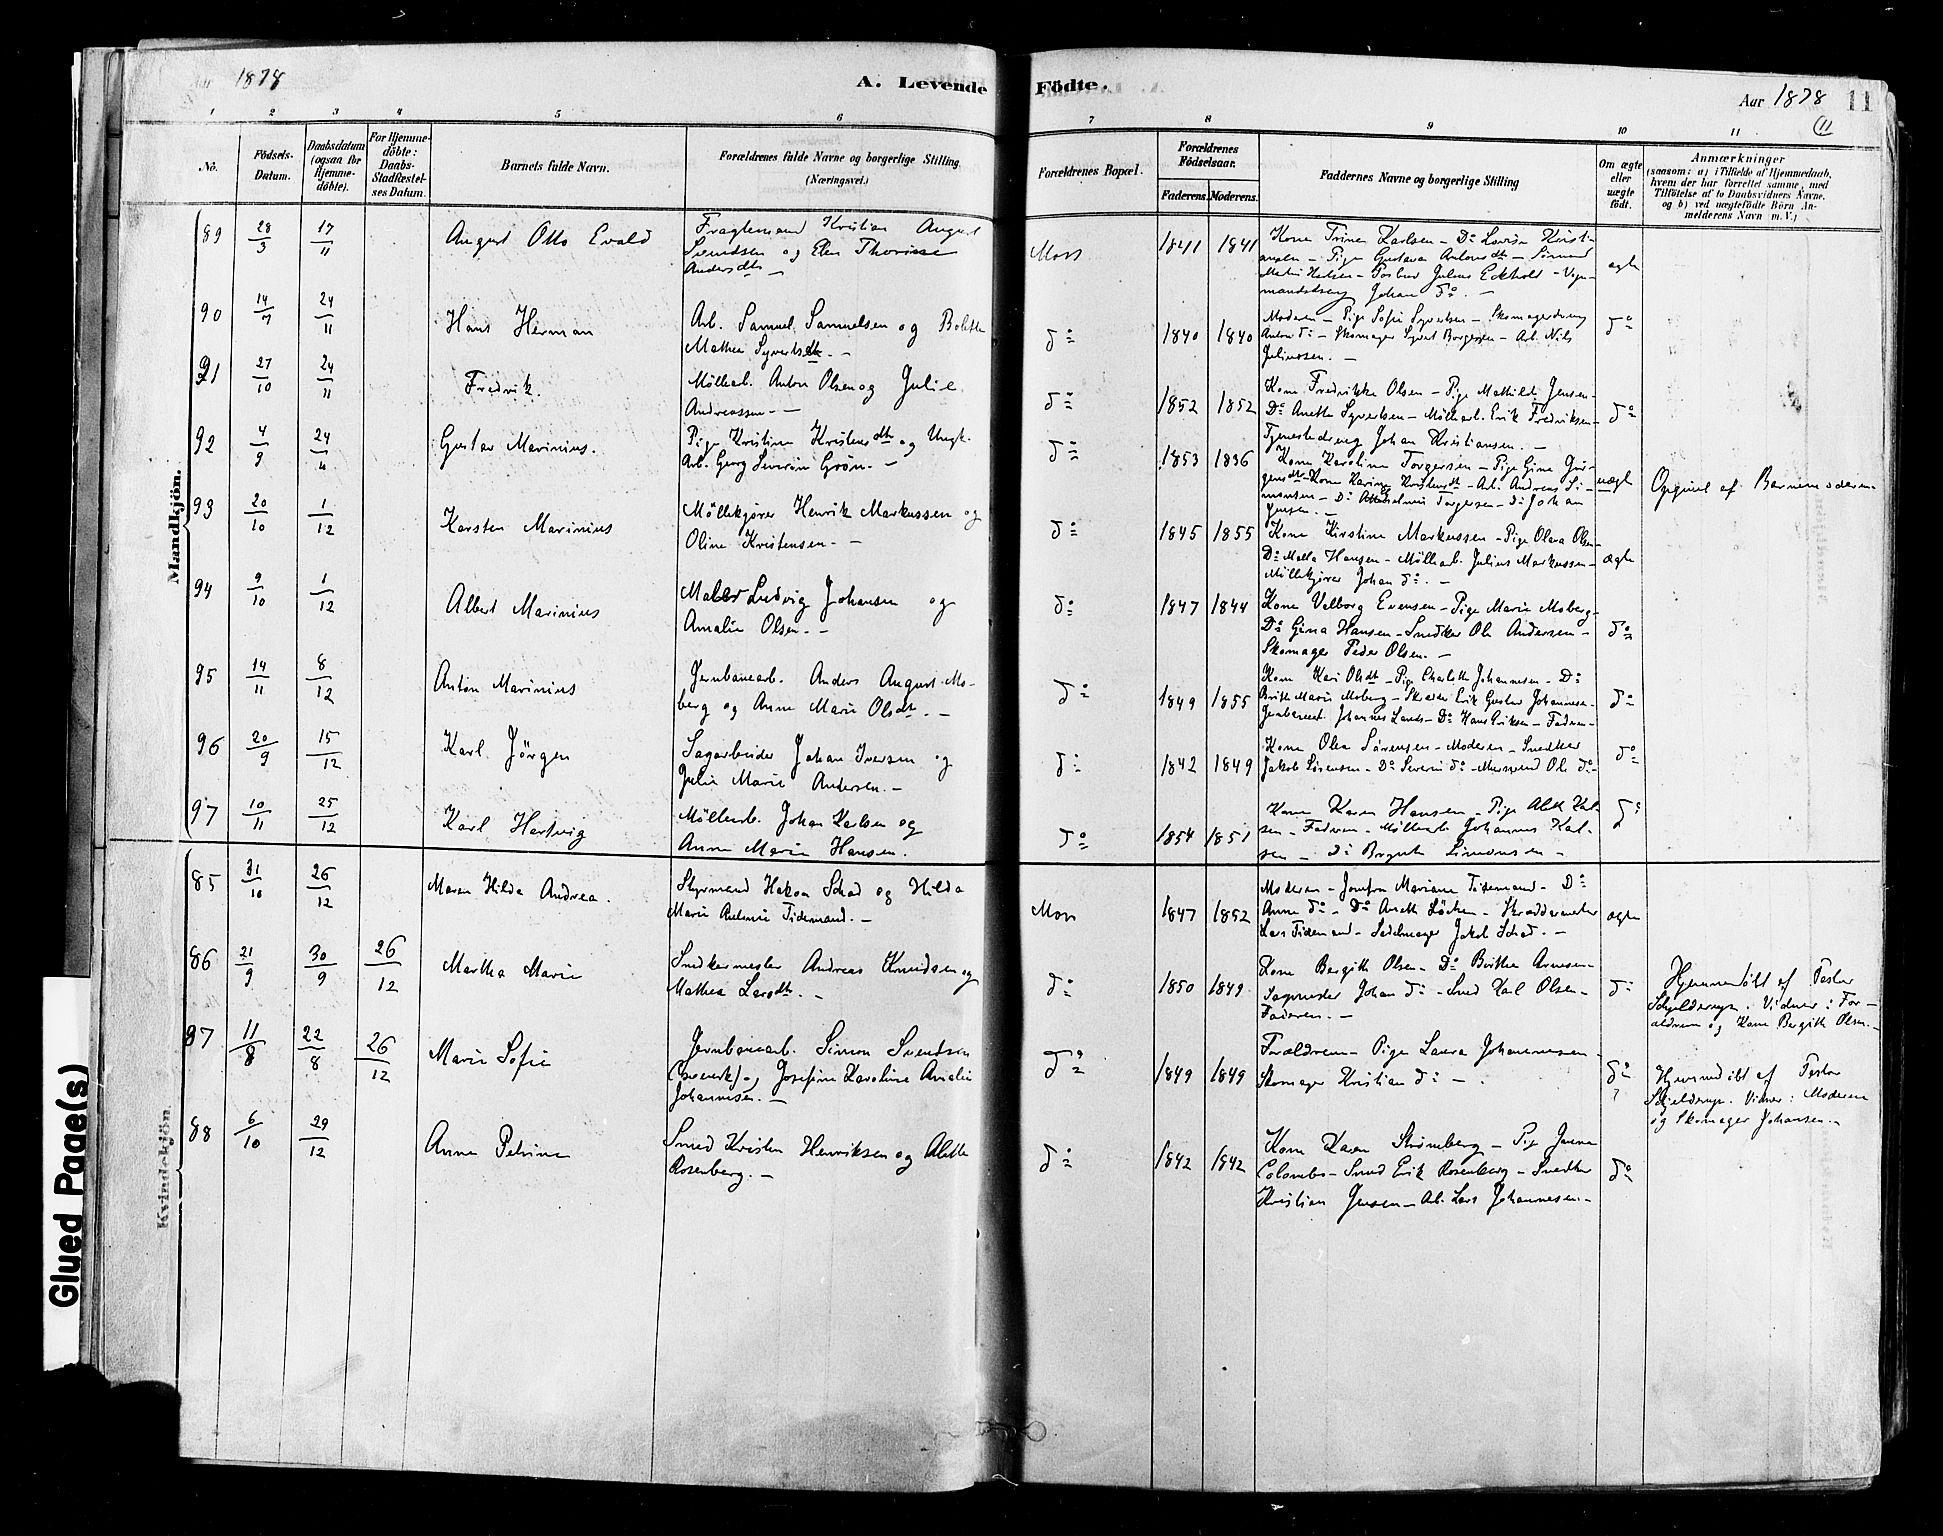 Aar 1878
A. Levende Födte.
Aar 1878
11
(11
1 2 3 4 5 6 7 8 9 10 11
No.
Födsels-
Datum.
Daabsdatum
(ogsaa for
Hjemme-
döbte).
For Hjemme-
döbte:
Daabs-
Stadfæstel-
ses Datum.
Barnets fulde Navn.
Forældrenes fulde Navne og borgerlige Stilling.
(Næringsvei.)
Forældrenes Bopæl.
Forældrenes
Födselsaar.
Faderens.
Moderens.
Faddernes Navne og borgerlige Stilling
Om ægte
eller
uægte
født.
Anmærkninger
(saasom: a) i Tilfælde af Hjemmedaab,
hvem der har forrettet samme, med
Tilföielse af to Daabsvidners Navne,
og b) ved uægtefödte Börn An-
melderens Navn m. V.)
Mandkjön.
89 28/3 17/11 August Otto Evald
Fragtemand Kristian August
Svendsen og Elen Thorine
Andersdtr. —
Moss 1841 1841
Kone Trine Karlsen — Do Lovise Krist-
ansen — Pige Gustava Antonsdtr — Sömand
Julius Eckholt —
Johan do. —
ægte
90 14/7 24/11 Hans Herman
Arb. Samuel Samuelsen og Bolette
Mathea Syvertsdtr. —
do 1840 1840
Moderen — Pige Sofie Syvertsen — Skomagerdreng
Anton do — Skomager Syvert Borgersen — Arb. Nils
Juliussen. —
do
91 27/10 24/11 Fredrik.
Möllearb. Anton Olsen og Julie
Andreassen. —
do 1852 1852
Kone Fredrikke Olsen — Pige Mathilde Jensen —
Do Anette Syvertsen — Möllearb. Erik Fredriksen —
Tjenestedreng Johan Kristiansen. —
do
92 4/9 24/11 Gustav Marinius.
Pige Kristine Kristensdtr og Ungk.
Arb. Georg Severin Grön. —
do 1853 1836
Kone Karoline Torgersen — Pige Gina Jör-
gensdtr — Kone Karine Kristensdtr — Arb. Andreas Si-
monsen — Do Torgersen — Do Johan
Jensen. —
uægte
Opgivet af Barnemoderen.
93 20/10 1/12 Karsten Marinius
Möllekjörer Henrik Markussen og
Oline Kristensen. —
do 1845 1855
Kone Kirstine Markussen — Pige Olava Olsen —
Do Malla Hansen — Möllearb. Julius Markussen —
Möllekjörer Johan do. —
ægte
94 9/10 1/12 Albert Marinius
Maler Ludvig Johansen og
Amalie Olsen. —
do 1847 1844
Kone Valborg Evensen — Pige Marie Moberg —
Do Gina Hansen — Snedker Ole Andersen —
Skomager Peder Olsen. —
do
95 14/11 8/12 Anton Marinius
Jernbanearb. Anders August Mo-
berg og Anne Marie Olsdtr. —
do 1849 1855
Kone Kari Olsdtr — Pige Charlotte Johannesen — Do
Britte Marie Moberg — Skræder Erik Gustav Johannesen —
Jernbanearb. Johannes Lands — Do Hans Eriksen — Faderen —
do
96 20/9 15/12 Karl Jörgen
Sagarbeider Johan Iversen og
Julie Marie Andersen. —
do 1842 1849
Kone Olea Sörensen — Moderen — Snedker
Jakob Sörensen — Do Severin do — Ole do —
do
97 10/11 25/12 Karl Hartvig
Möllearb. Johan Karlsen og
Anne Marie Hansen.
do 1854 1851
Kone Karen Hansen — Pige Alette Karl-
sen — Faderen — Möllearb. Johannes Karl-
sen — Do Simonsen —
do
Kvindekjön.
85 31/10 26/12 Maren Hilda Andrea.
Styrmand Hakon Schad og Hilda
Marie Antonie Tidemand. —
Moss 1847 1852
Moderen — Jomfru Mariane Tidemand — Do
Anne do — Do Anette Löcken — Skræddermester
Lars Tidemand — Sadelmager Jakob Schad. —
ægte
86 21/9 30/9 26/12 Martha Marie
Snedkermester Andreas Knudsen og
Mathea Larsdtr. —
do 1850 1849
Kone Bergitte Olsen — Do Berthe Arnesen —
Johan do — Smed Karl Olsen —
Faderen. —
do
Hjemmedöbt af Pastor
Schjelderup. Vidner: For-
ældrene og Kone Bergitte Olsen. —
87 11/8 22/8 26/12 Marie Sofie
Jernbanearb. Simon Svendsen
(svensk) og Josefine Karoline Amalie
Johannesen. —
do 1849 1849
Forældrene — Pige Laura Johannesen —
Skomager Kristian do —.
do
Hjemmedöbt af Pastor
Schjelderup. Vidner: Moderen
og Skomager Johansen. —
88 6/10 29/12 Anne Petrine
Smed Kristen Henriksen og Alette
Rosenberg. —
do 1842 1842
Kone Karen Strömberg — Pige Janna
Colombo — Smed Erik Rosenberg — Snedker
Kristian Jensen — Arb. Lars Johannesen. —
do
Glued Page(s)